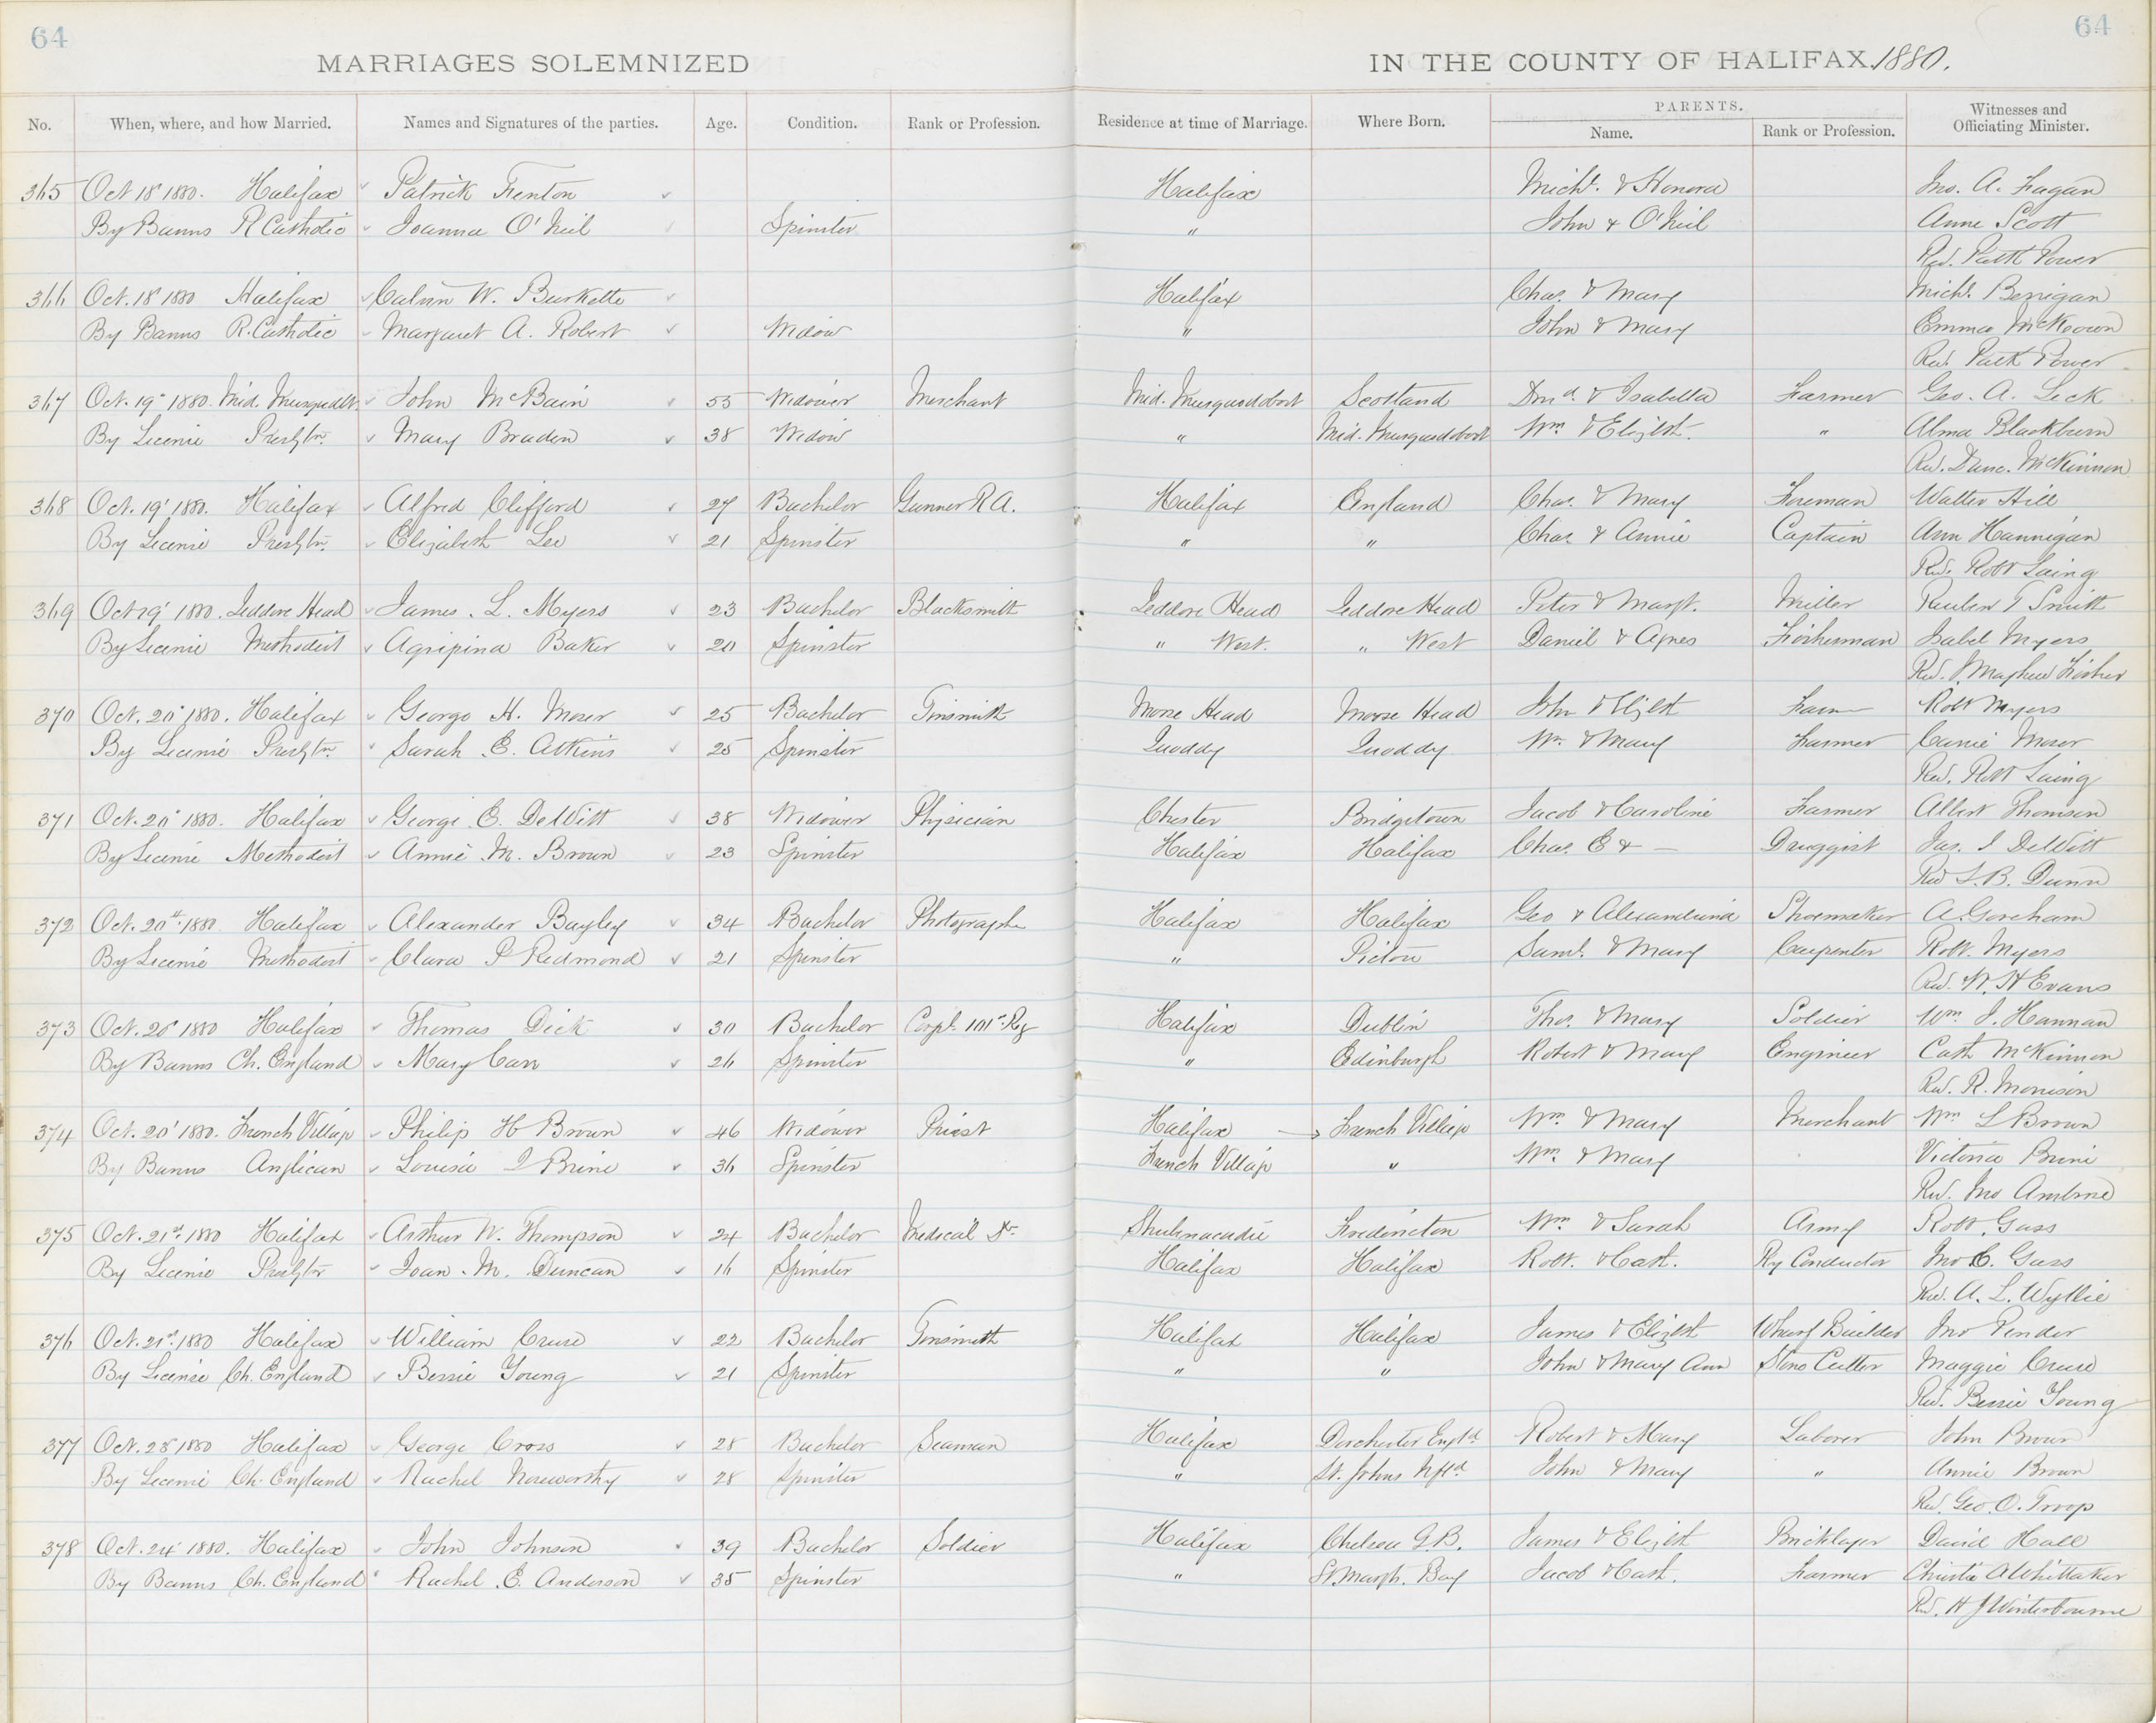 64 64
MARRIAGES SOLEMNIZED IN THE COUNTY OF HALIFAX 1880.
PARENTS.
No. When, where, and how Married. Names and Signatures of the parties. Age. Condition. Rank or Profession. Residence at time of Marriage. Where Born. Name. Rank or Profession. Witnesses and Officiating Minister.
365 Oct 18 1880. Halifax Patrick Fenton Halifax Michl. & Honora Jno. A. Fagan
By Banns R Catholic Joanna O'Neil Spinster " John & O'Neil Anne Scott
Rev. Patk Power
366 Oct. 18 1880 Halifax Calvin W. Burkette Halifax Chas. & Mary Michl. Berrigan
By Banns R. Catholic Margaret A. Robert Widow " John & Mary Emma McKeown
Rev. Patk Power
367 Oct. 19 1880. Mid. Musquodbt. John McBain 55 Widower Merchant Mid. Musquodobort Scotland & Isabella Farmer Geo. A. Leck
By Licenie Presbytn. Mary Braden 38 Widow " Mid. Musquodobort Wm & Elizbt. " Alma Blackburn
Rev. Dunc. McKinnon
368 Oct. 19 1880. Halifax Alfred Clifford 27 Bachelor Gunner R A. Halifax England Chas. & Mary Foreman Walter Hill
By Licenie Presbytn. Elizabeth Lee 21 Spinster " " Chas & Annie Captain Ann Hannigan
Rev. Robt Laing
369 Oct 19 1880. Jeddore Head James. L. Myers 23 Bachelor Blacksmith Jeddore Head Jeddore Head Peter & Margt. Miller Reuben T Smith
By Licenie Methodist Agripina Baker 20 Spinster " West. " West Daniel & Agnes Fisherman Isabel Myers
Rev. J. Mayhew Fisher
370 Oct. 20 1880. Halifax George H. Moser 25 Bachelor Tinsmith Mose Head Moose Head John & Elizbt Farm Robt Myers
By Licenie Presbytn Sarah E. Atkins 25 Spinster Quoddy Quoddy Wm. & Mary Farmer Carrie Moser
Rev. Robt Laing
371 Oct. 20 1880. Halifax George E. DeWitt 38 Widower Physician Chester Bridgetown Jacob & Caroline Farmer Albert Thomson
By Licenie Methodist Annie M. Brown 23 Spinster Halifax Halifax Chas. E & — Druggist Jas. I DeWitt
Rev S. B. Dunn
372 Oct. 20th 1880 Halifax Alexander Bayley 34 Bachelor Photographr Halifax Halifax Geo & Alexandrina Shoemaker A. Goreham
By Licenie Methodist Clara P Redmond 21 Spinster " Pictou Saml. & Mary Carpenter Robt. Myers
Rev. W. H Evans
373 Oct. 20 1880 Halifax Thomas Dick 30 Bachelor Corpl. 101st Rg Halifax Dublin Thos. & Mary Soldier Wm. J. Hannan
By Banns Ch. England Mary Carr 26 Spinster " Edinburgh Robert & Mary Engineer Cath McKinnon
Rev. R. Morrison
374 Oct. 20 1880. French Village Philip H Brown 46 Widower Priest Halifax French Village Wm. & Mary Merchant Wm L Brown
By Banns Anglican Louisa J Brine 36 Spinster French Village " Wm & Mary Victoria Brine
Rev. Jno Ambrose
375 Oct. 21st 1880 Halifax Arthur W. Thompson 24 Bachelor Medical St. Shubenacadie Fredericton Wm & Sarah Army Robt. Gass
By Licenie Presbytr Joan. M. Duncan 16 Spinster Halifax Halifax Robt. & Cath. Ry Conductor Jno C. Gass
Rev. A. L. Wyllie
376 Oct. 21st 1880 Halifax William Cruse 22 Bachelor Tinsmith Halifax Halifax James & Elizbt Wharf Builder Jno Pender
By Licenie Ch. England Bessie Young 21 Spinster " " John & Mary Ann Stone Cutter Maggie Cruse
Rev. Bessie Young
377 Oct. 23 1880 Halifax George Cross 28 Bachelor Seaman Halifax Dorchester Engld Robert & Mary Laborer John Brown
By Licenie Ch. England Rachel Noseworthy 28 Spinster " St. Johns Nfld John & Mary " Annie Brown
Rev. Geo. O. Troop
378 Oct. 24 1880. Halifax John Johnson 39 Bachelor Soldier Halifax Chelsea G. B. James & Elizbt Bricklayer David Hall
By Banns Ch. England Rachel E. Anderson 35 Spinster " St. Margts. Bay Jacob & Cath. Farmer Christie A Whittaker
Rev. H J Winterbourne